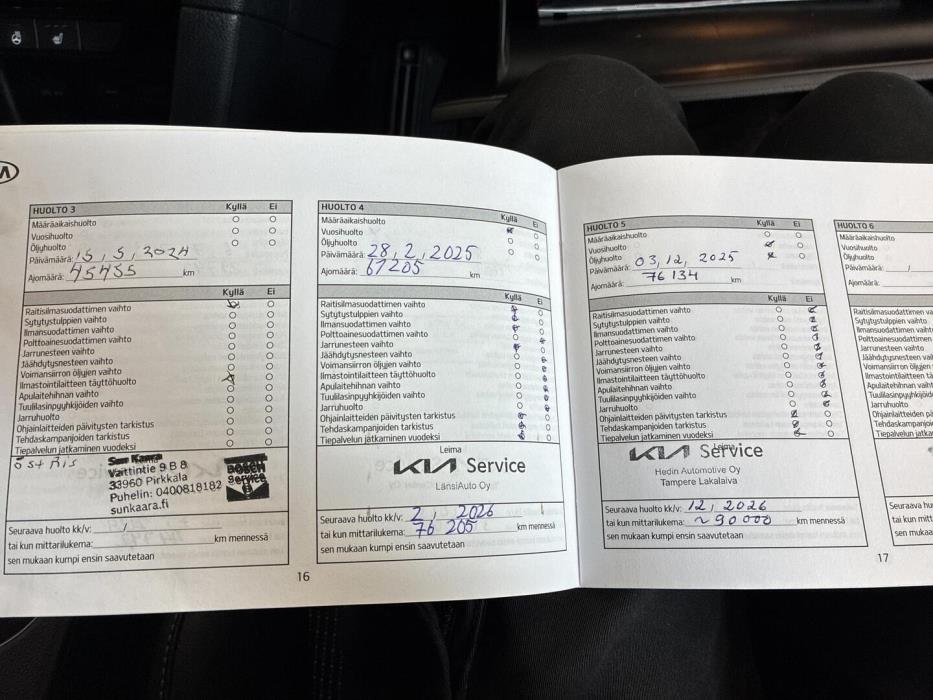 HUOLTO 3 Kyllä Ei
Määräaikaishuolto
Vuosihuolto
Öljyhuolto
Päivämäärä: 15, 5, 2024
Ajomäärä: 45455 km
Kyllä Ei
Raitisilmasuodattimen vaihto
Sytytystulppien vaihto
Ilmansuodattimen vaihto
Polttoainesuodattimen vaihto
Jarrunesteen vaihto
Jäähdytysnesteen vaihto
Voimansiirron öljyjen vaihto
Ilmastointilaitteen täyttöhuolto
Apulaitehihnan vaihto
Tuulilasinpyyhkijöiden vaihto
Jarruhuolto
Ohjainlaitteiden päivitysten tarkistus
Tehdaskampanjoiden tarkistus
Tiepalvelun jatkaminen vuodeksi
Vaittintie 9 B 8
33960 Pirkkala
Puhelin: 0400818182
sunkaara.fi
BOSCH
Service
Seuraava huolto kk/v: /
tai kun mittarilukema: km mennessä
sen mukaan kumpi ensin saavutetaan
HUOLTO 4 Kyllä Ei
Määräaikaishuolto
Vuosihuolto
Öljyhuolto
Päivämäärä: 28, 2, 2025
Ajomäärä: 67205 km
Kyllä Ei
Raitisilmasuodattimen vaihto
Sytytystulppien vaihto
Ilmansuodattimen vaihto
Polttoainesuodattimen vaihto
Jarrunesteen vaihto
Jäähdytysnesteen vaihto
Voimansiirron öljyjen vaihto
Ilmastointilaitteen täyttöhuolto
Apulaitehihnan vaihto
Tuulilasinpyyhkijöiden vaihto
Jarruhuolto
Ohjainlaitteiden päivitysten tarkistus
Tehdaskampanjoiden tarkistus
Tiepalvelun jatkaminen vuodeksi
Leima
KIA Service
LänsiAuto Oy
Seuraava huolto kk/v: 2, 2026
tai kun mittarilukema: 76 205 km mennessä
sen mukaan kumpi ensin saavutetaan
16
HUOLTO 5 Kyllä Ei
Määräaikaishuolto
Vuosihuolto
Öljyhuolto
Päivämäärä: 03, 12, 2025
Ajomäärä: 76134 km
Kyllä Ei
Raitisilmasuodattimen vaihto
Sytytystulppien vaihto
Ilmansuodattimen vaihto
Polttoainesuodattimen vaihto
Jarrunesteen vaihto
Jäähdytysnesteen vaihto
Voimansiirron öljyjen vaihto
Ilmastointilaitteen täyttöhuolto
Apulaitehihnan vaihto
Tuulilasinpyyhkijöiden vaihto
Jarruhuolto
Ohjainlaitteiden päivitysten tarkistus
Tehdaskampanjoiden tarkistus
Tiepalvelun jatkaminen vuodeksi
Leima
KIA Service
Hedin Automotive Oy
Tampere Lakalaiva
Seuraava huolto kk/v: 12, 2026
tai kun mittarilukema: ~90000 km mennessä
sen mukaan kumpi ensin saavutetaan
17
HUOLTO 6
Määräaikaishuolto
Vuosihuolto
Öljyhuolto
Päivämäärä: /
Ajomäärä:
Raitisilmasuodattimen va
Sytytystulppien vaihto
Ilmansuodattimen vaiht
Polttoainesuodattimen
Jarrunesteen vaihto
Jäähdytysnesteen vai
Voimansiirron öljyjen
Ilmastointilaitteen tä
Apulaitehihnan vaiht
Tuulilasinpyyhkijöid
Jarruhuolto
Ohjainlaitteiden pä
Tehdaskampanjoi
Tiepalvelun jatka
Seuraava hu
tai kun mitt
sen mukaa